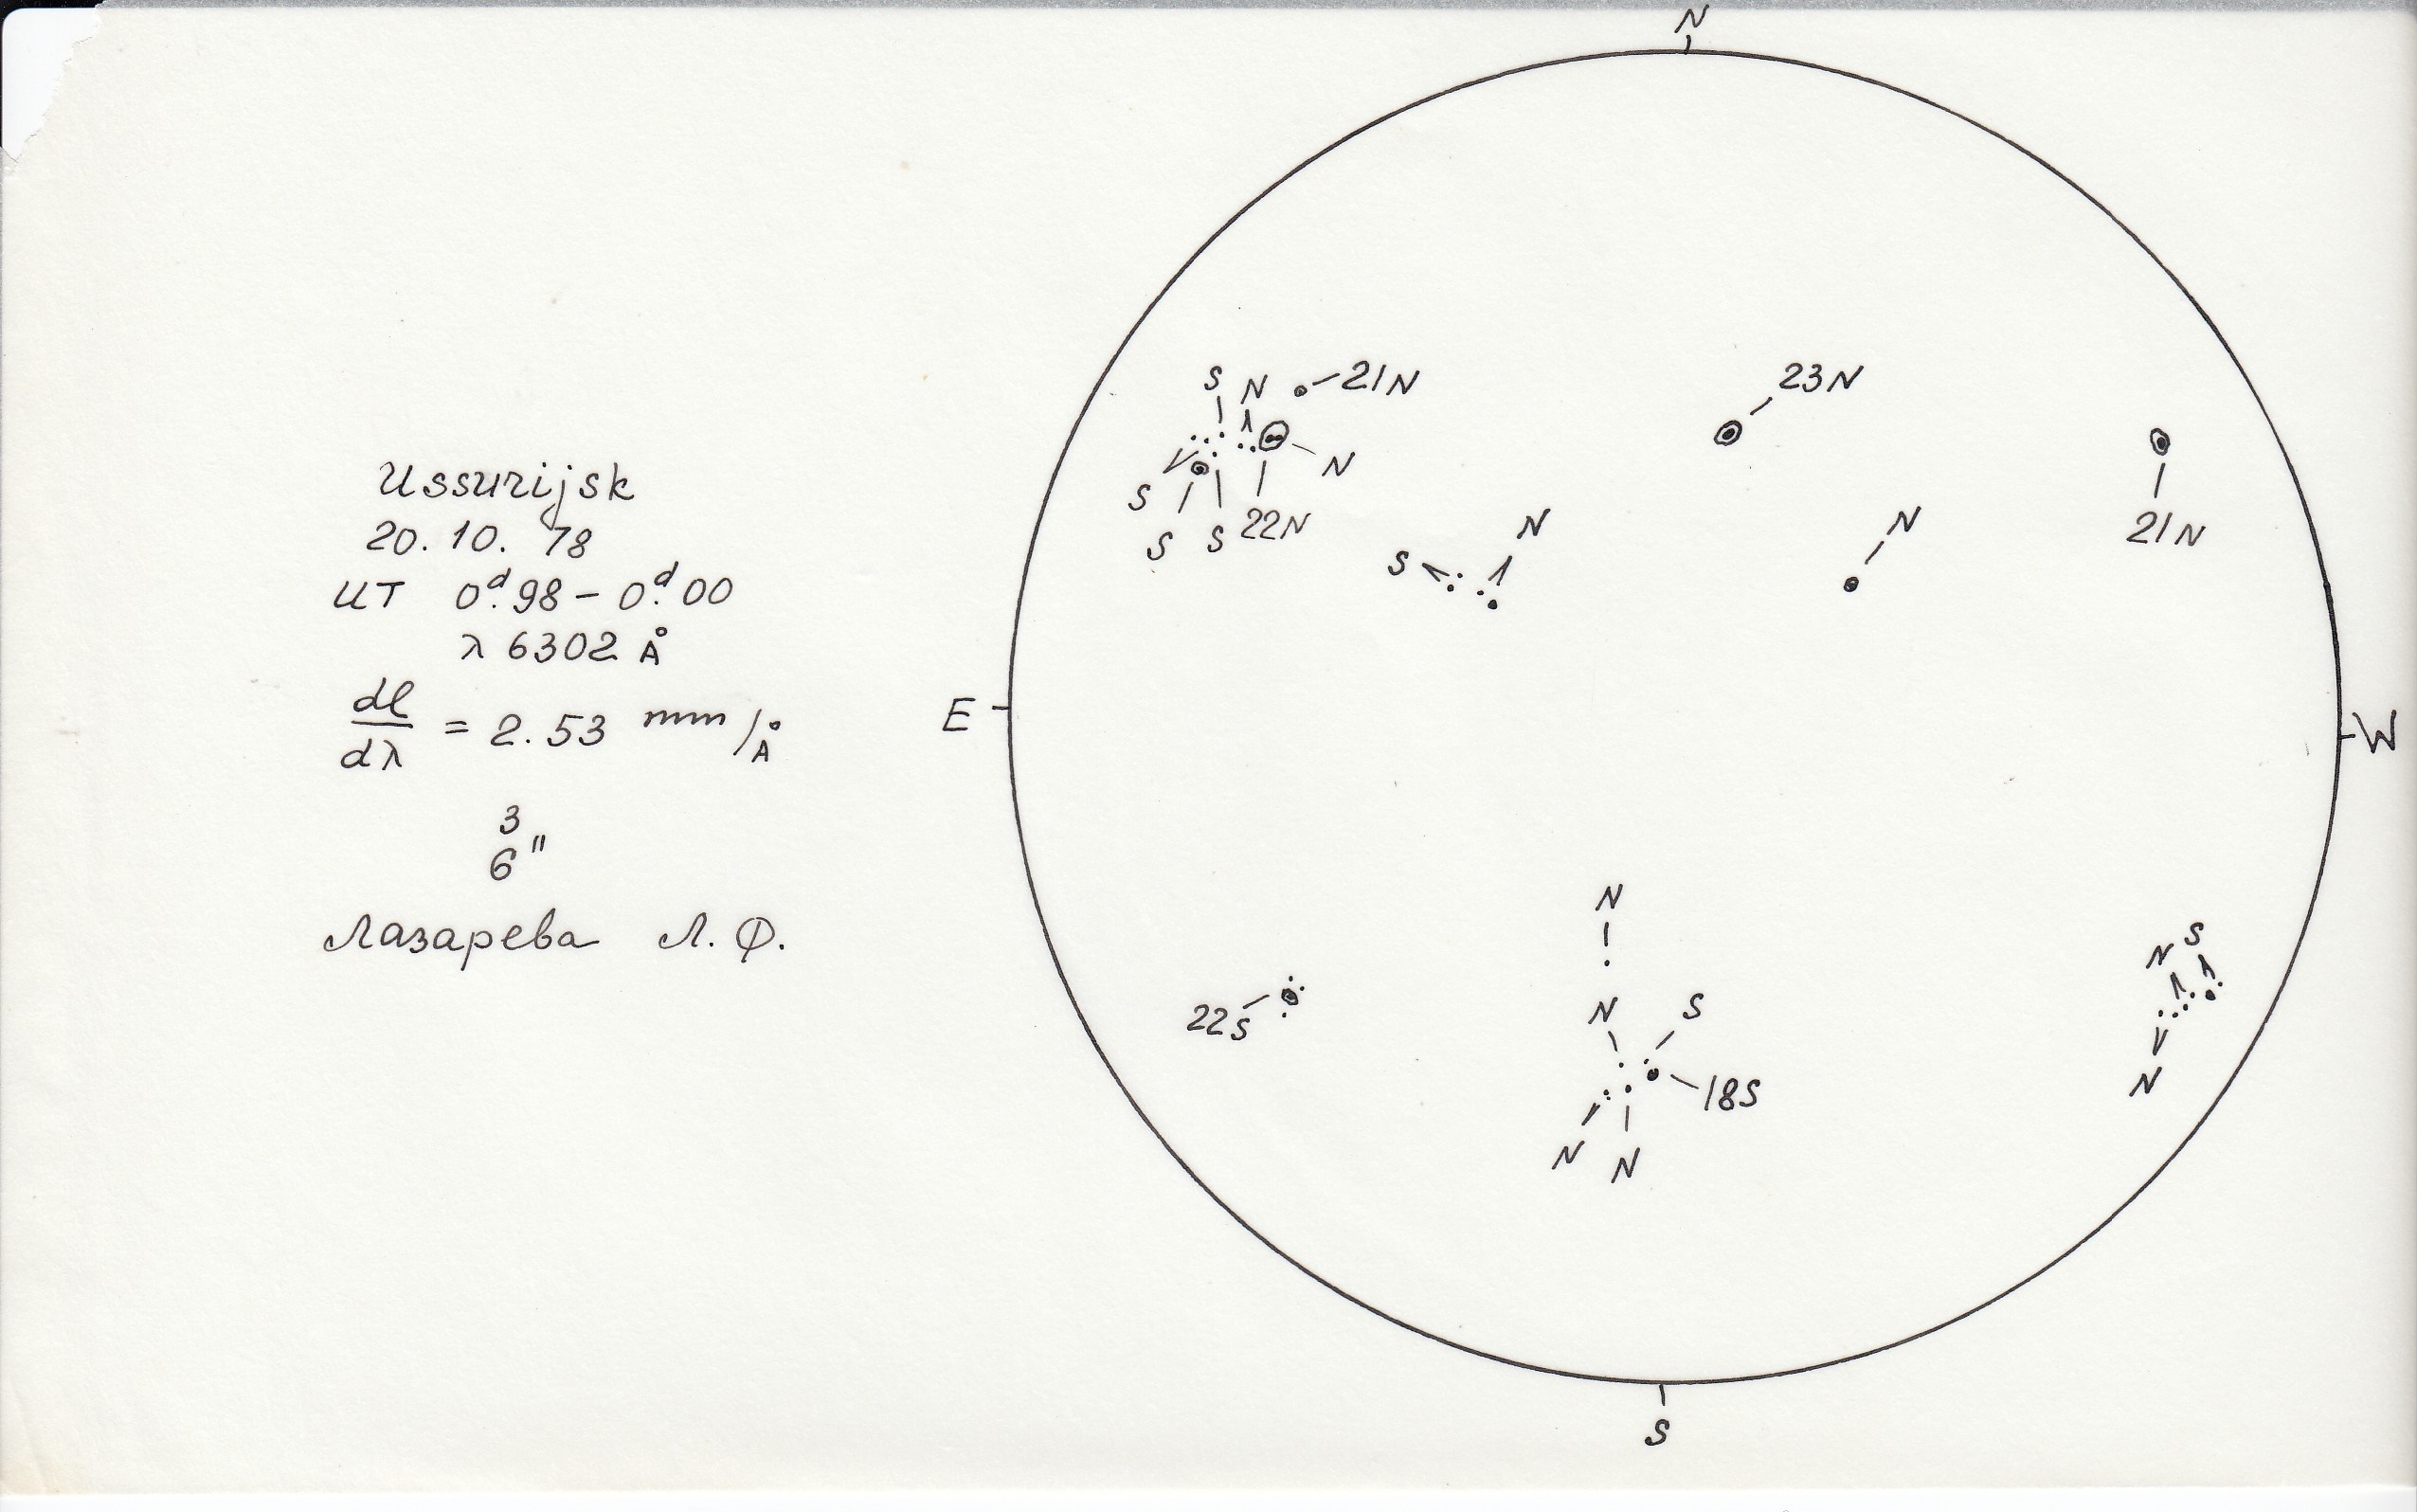 Ussurijsk
20. 10. 78
UT 0ᵈ.98 – 0ᵈ.00
λ 6302 Å
dl
dλ
= 2.53 mm/Å
3
6"
Лазарева Л. Ф.
N
S N 21N
23N
N
S
S S 22N
S N
N
21N
E
W
N
N S
18S
N N
22S
N S
N
S